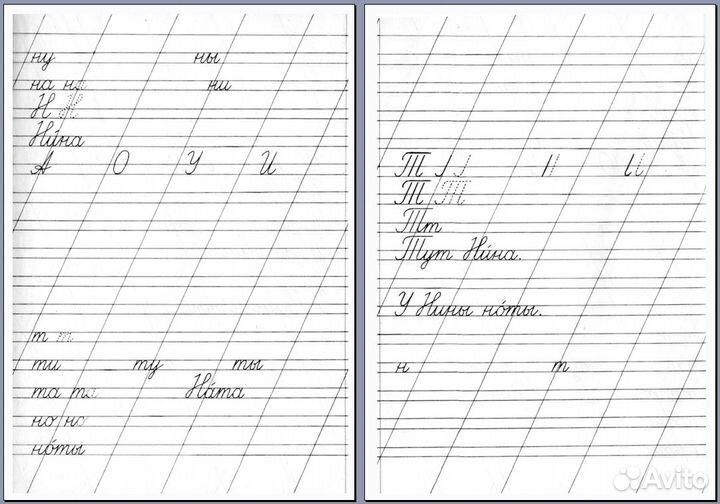 ну ны
на на ни
Н Н
Ни́на
А О У И
т т
ти ту ты
та та На́та
но но
но́ты
Т
Т Т
Тт
Тут Ни́на.
У Нины но́ты.
н т
Avito